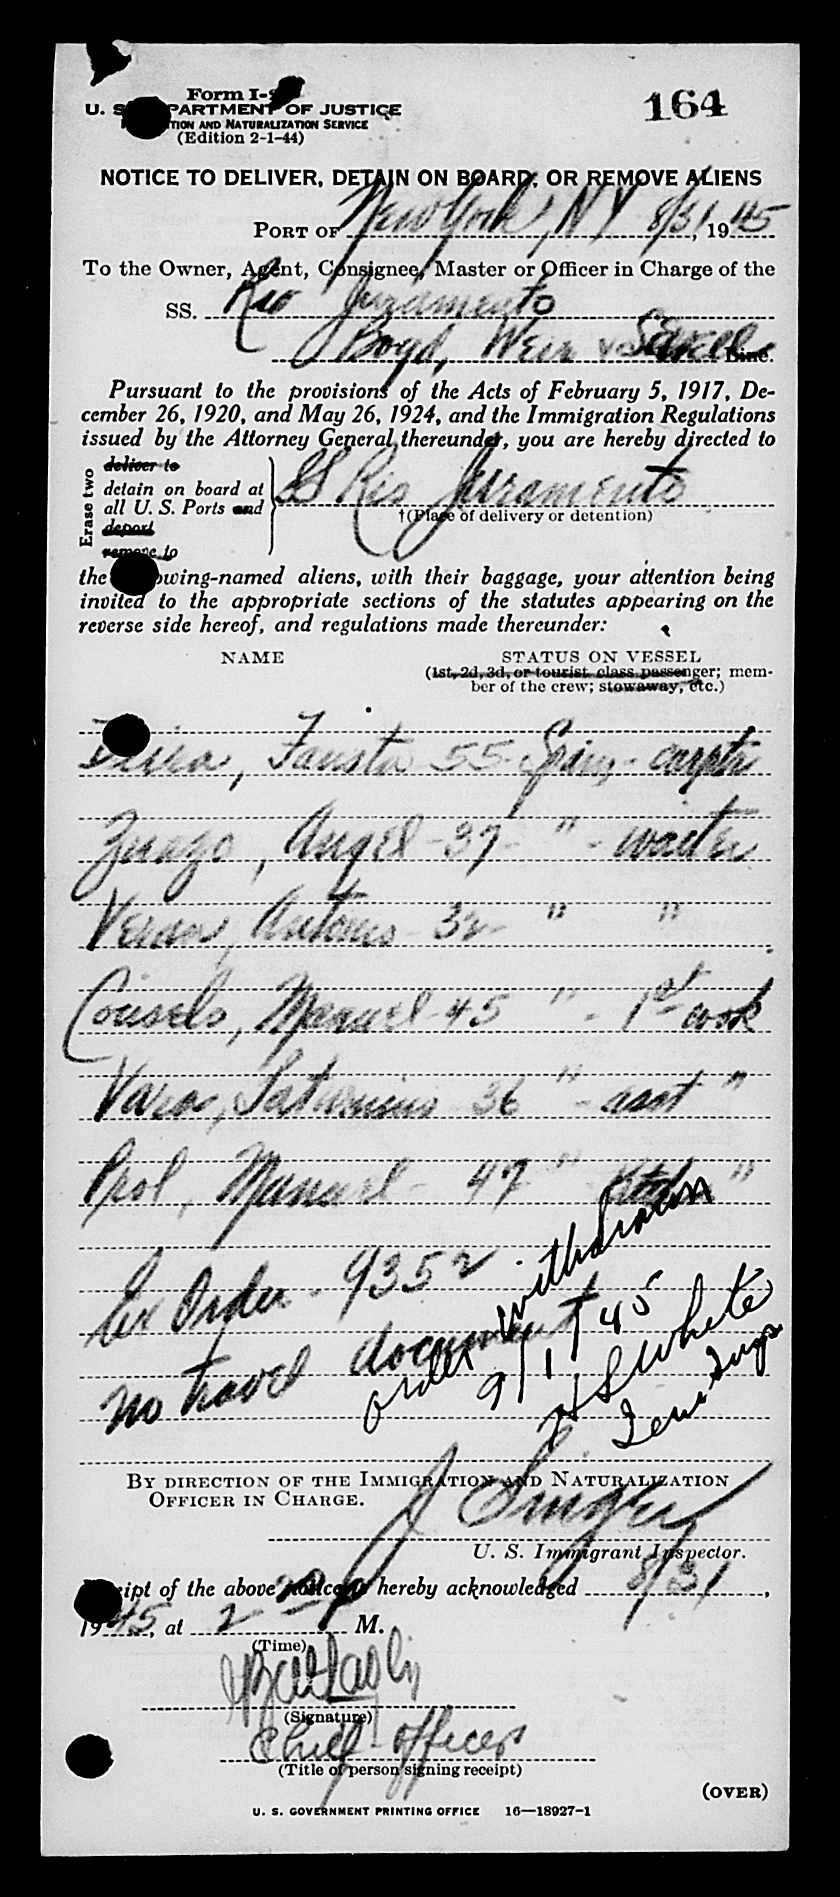 Form I-
164
U. S. DEPARTMENT OF JUSTICE
IMMIGRATION AND NATURALIZATION SERVICE
(Edition 2-1-44)
NOTICE TO DELIVER, DETAIN ON BOARD, OR REMOVE ALIENS
PORT OF New York, NY 8/31, 1945
To the Owner, Agent, Consignee, Master or Officer in Charge of the
SS. Rio Juramento
Boyd, Weir & Sewell Line.
Pursuant to the provisions of the Acts of February 5, 1917, De-
cember 26, 1920, and May 26, 1924, and the Immigration Regulations
issued by the Attorney General thereunder, you are hereby directed to
Erase two
deliver to
detain on board at
all U. S. Ports and
deport
remove to
SS Rio Juramento
†(Place of delivery or detention)
the following-named aliens, with their baggage, your attention being
invited to the appropriate sections of the statutes appearing on the
reverse side hereof, and regulations made thereunder:
NAME STATUS ON VESSEL
(1st, 2d, 3d, or tourist class passenger; mem-
ber of the crew; stowaway, etc.)
Fausto 55 - Span - carptr
Zuazo, Angel - 37 - " - waiter
Antonio - 32 " "
Manuel - 45 " - 1st cook
Vara, Saturnino 36 " - asst "
Prol, Manuel - 47 " "
Ex Order - 9352
no travel document
order withdrawn
9/1/45
H S White
J Singer
BY DIRECTION OF THE IMMIGRATION AND NATURALIZATION
OFFICER IN CHARGE.
U. S. Immigrant Inspector.
Receipt of the above notice is hereby acknowledged 8/31,
1945, at 2 P M.
(Time)
(Signature)
Chief officer
(Title of person signing receipt)
(OVER)
U. S. GOVERNMENT PRINTING OFFICE 16—18927-1